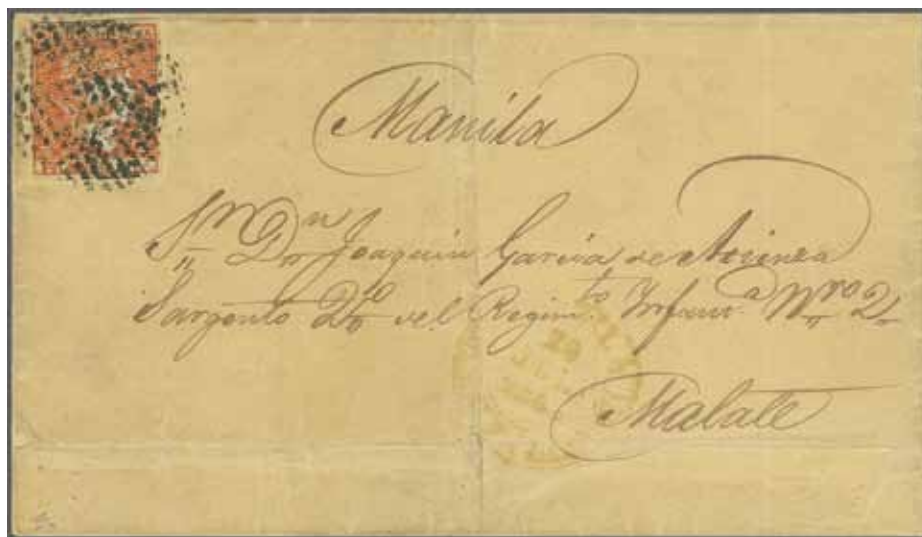 Manila
Sr. Dn. Joaquin Garcia de
Sargento 2º del Regimto. Infanta. Nro. 2
Malate